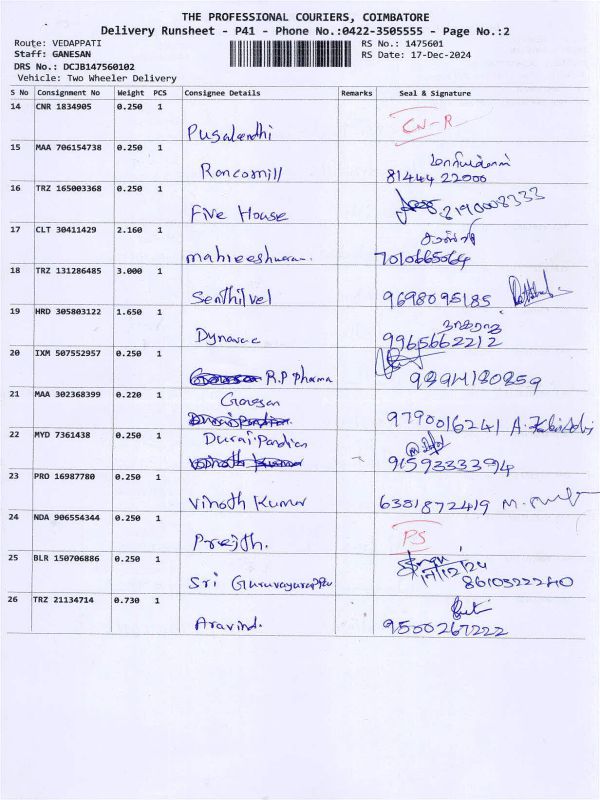 THE PROFESSIONAL COURIERS, COIMBATORE
Delivery Runsheet - P41 - Phone No.:0422-3505555 - Page No.:2
Route: VEDAPPATI
Staff: GANESAN
RS No.: 1475601
RS Date: 17-Dec-2024
DRS No.: DCJB147560102
Vehicle: Two Wheeler Delivery
S No Consignment No Weight PCS Consignee Details Remarks Seal & Signature
14 CNR 1834905 0.250 1
Pugalendhi CN-R
15 MAA 706154738 0.250 1
Rancomill 81444 22000
16 TRZ 165003368 0.250 1
Five House 8190008333
17 CLT 30411429 2.160 1
maheeshwaran. 7010665064
18 TRZ 131286485 3.000 1
Senthilvel 9698095185
19 HRD 305803122 1.650 1
9965662212
20 IXM 507552957 0.250 1
R.P Pharma
21 MAA 302368399 0.220 1
Ganesan
9790016241
22 MYD 7361438 0.250 1
Durai Pandian
9159333394
23 PRO 16987780 0.250 1
Vinoth Kumar 6381872419
24 NDA 906554344 0.250 1
PS
25 BLR 150706886 0.250 1
17/12/24
Sri Guruvayurappa 8610322240
26 TRZ 21134714 0.730 1
Aravind. 9500267222